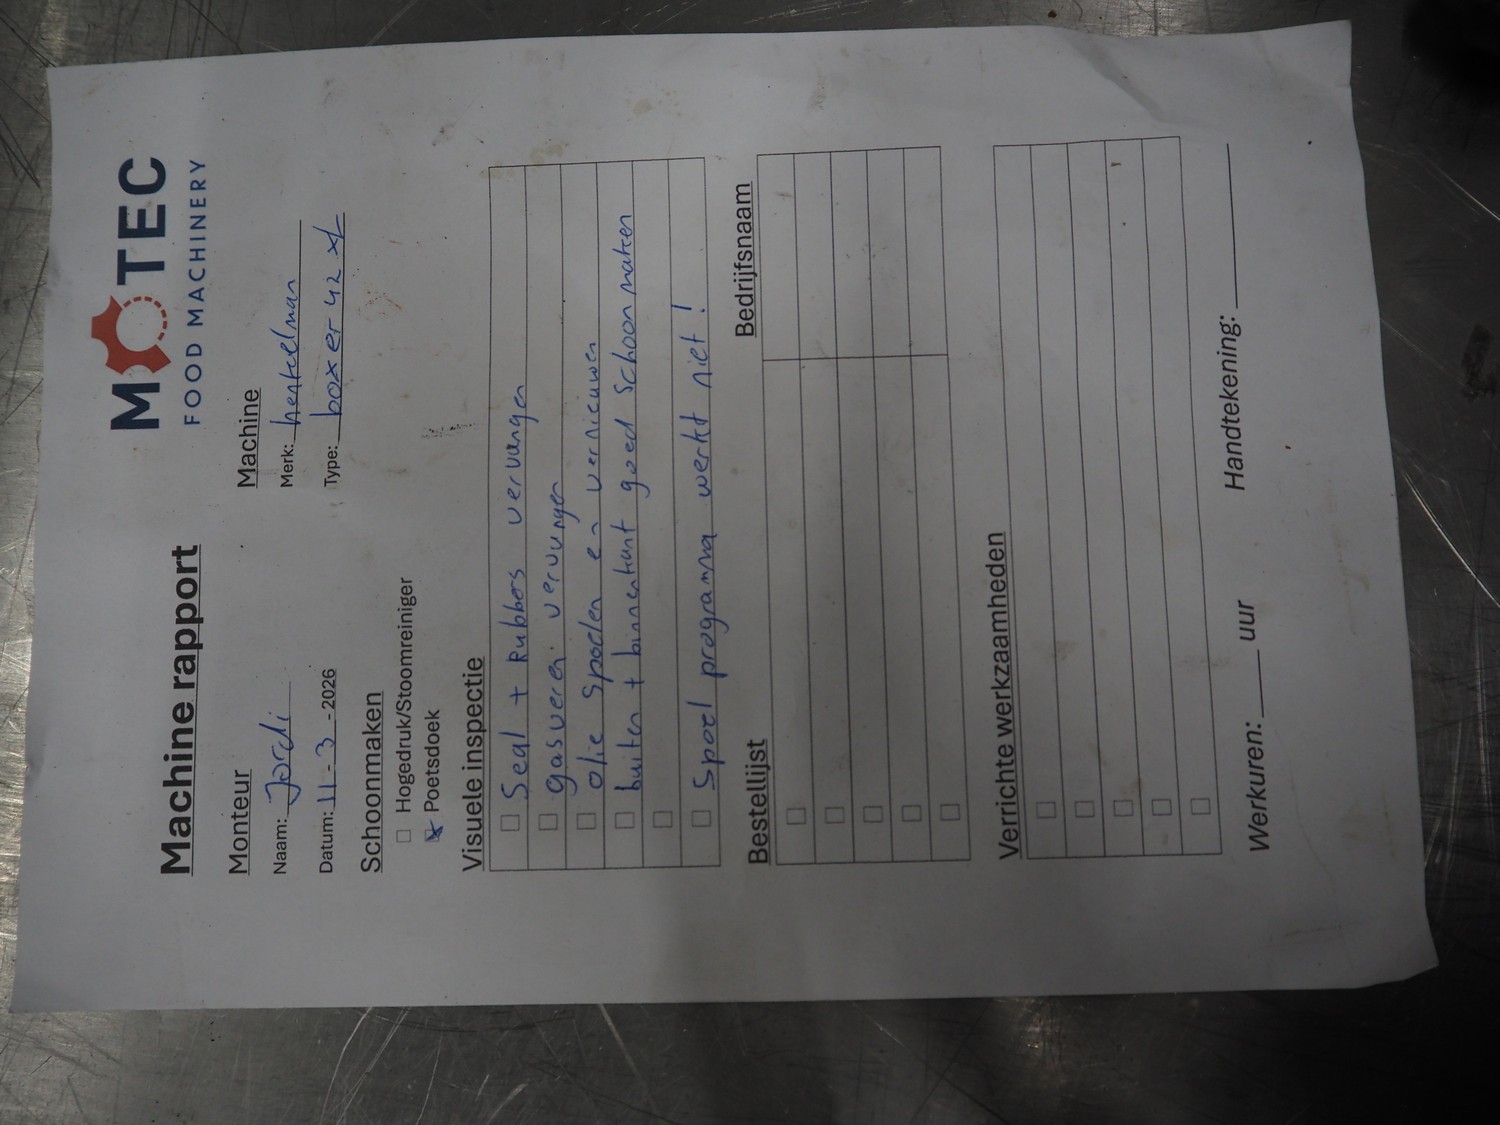 Machine rapport
MOTEC
FOOD MACHINERY
Monteur
Naam: Jordi
Datum: 11-3-2026
Machine
Merk: henkelman
Type: boxer 42 XL
Schoonmaken
Hogedruk/Stoomreiniger
Poetsdoek
Visuele inspectie
Seal + Rubbers vervangen
gasveren vervangen
olie spoelen en vernieuwen
buiten + binnenkant goed schoonmaken
Spoel programma werkt niet!
Bestellijst Bedrijfsnaam
Verrichte werkzaamheden
Werkuren: ____ uur Handtekening: ____